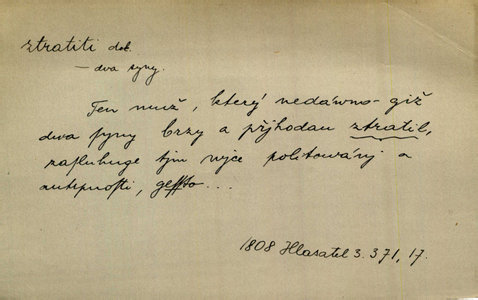 ztratiti dok.
— dva syny.
Ten muž, který nedáwno giž
dwa syny brzy a přjhodau ztratil,
zasluhuge tjm wjce politowánj a
autrpnosti, gessto...
1808 Hlasatel 3. 371, 17.